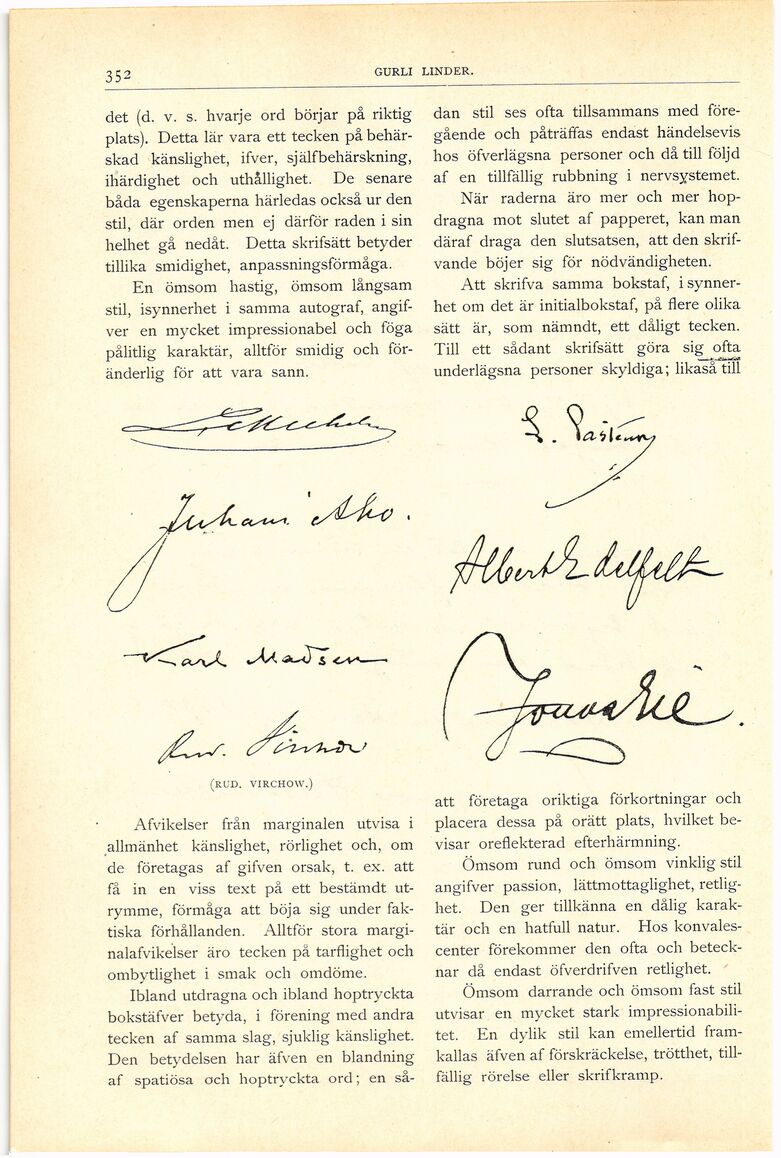 352
GURLI LINDER.
det (d. v. s. hvarje ord börjar på riktig
plats). Detta lär vara ett tecken på behär-
skad känslighet, ifver, själfbehärskning,
ihärdighet och uthållighet. De senare
båda egenskaperna härledas också ur den
stil, där orden men ej därför raden i sin
helhet gå nedåt. Detta skrifsätt betyder
tillika smidighet, anpassningsförmåga.
En ömsom hastig, ömsom långsam
stil, isynnerhet i samma autograf, angif-
ver en mycket impressionabel och föga
pålitlig karaktär, alltför smidig och för-
änderlig för att vara sann.
L. Mechelin
Juhani Aho.
Karl Madsen
Rud. Virchow
(RUD. VIRCHOW.)
Afvikelser från marginalen utvisa i
allmänhet känslighet, rörlighet och, om
de företagas af gifven orsak, t. ex. att
få in en viss text på ett bestämdt ut-
rymme, förmåga att böja sig under fak-
tiska förhållanden. Alltför stora margi-
nalafvikelser äro tecken på tarflighet och
ombytlighet i smak och omdöme.
Ibland utdragna och ibland hoptryckta
bokstäfver betyda, i förening med andra
tecken af samma slag, sjuklig känslighet.
Den betydelsen har äfven en blandning
af spatiösa och hoptryckta ord; en så-
dan stil ses ofta tillsammans med före-
gående och påträffas endast händelsevis
hos öfverlägsna personer och då till följd
af en tillfällig rubbning i nervsystemet.
När raderna äro mer och mer hop-
dragna mot slutet af papperet, kan man
däraf draga den slutsatsen, att den skrif-
vande böjer sig för nödvändigheten.
Att skrifva samma bokstaf, i synner-
het om det är initialbokstaf, på flere olika
sätt är, som nämndt, ett dåligt tecken.
Till ett sådant skrifsätt göra sig ofta
underlägsna personer skyldiga; likaså till
L. Pasteur
Albert Edelfelt
att företaga oriktiga förkortningar och
placera dessa på orätt plats, hvilket be-
visar oreflekterad efterhärmning.
Ömsom rund och ömsom vinklig stil
angifver passion, lättmottaglighet, retlig-
het. Den ger tillkänna en dålig karak-
tär och en hatfull natur. Hos konvales-
center förekommer den ofta och beteck-
nar då endast öfverdrifven retlighet.
Ömsom darrande och ömsom fast stil
utvisar en mycket stark impressionabili-
tet. En dylik stil kan emellertid fram-
kallas äfven af förskräckelse, trötthet, till-
fällig rörelse eller skrifkramp.